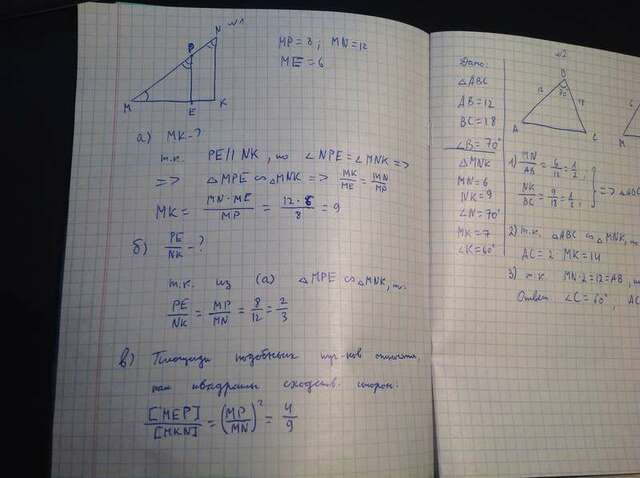 №1
N
P
M
E
K
MP = 8 ; MN = 12
ME = 6
а) MK - ?
т.к. PE || NK, то ∠NPE = ∠MNK =>
=> △MPE ∽ △MNK => MK/ME = MN/MP
MK = MN·ME/MP = 12·6/8 = 9
б) PE/NK - ?
т.к. из (а) △MPE ∽ △MNK, то
PE/NK = MP/MN = 8/12 = 2/3
в) Площади подобных
как квадраты сходств. сторон:
[MEP]/[MKN] = (MP/MN)² = 4/9
№2
Дано:
△ABC
AB = 12
BC = 18
∠B = 70°
△MNK
MN = 6
NK = 9
∠N = 70°
MK = 7
∠K = 60°
B
12
70
18
A
C
M
1) MN/AB = 6/12 = 1/2 ;
NK/BC = 9/18 = 1/2 ;
=> △ABC
2) т.к. △ABC ∽ △MNK, то
AC = 2·MK = 14
3) т.к. MN·2 = 12 = AB,
Ответ ∠C = 60°, AC